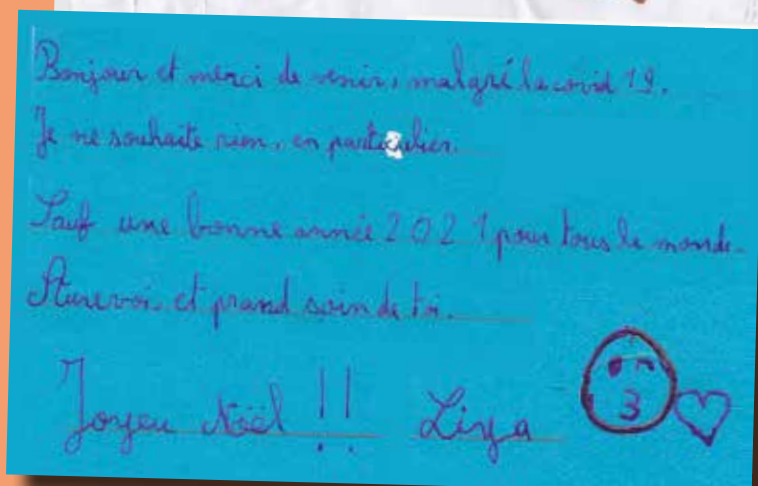 Bonjour et merci de venir, malgré la covid 19.
Je ne souhaite rien, en particulier.
Sauf une bonne année 2021 pour tous le monde.
Aurevoi et prand soin de toi.
Joyeu Noël !! Lisya